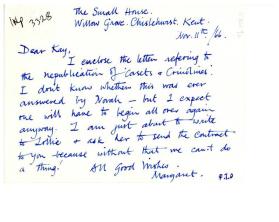 Wp 3328
The Small House.
Willow Grove. Chislehurst. Kent.
Nov. 11th /66.
Dear Kay,
I enclose the letter refering to
the republication of Corsets & Crinolines.
I don't know whether this was ever
answered by Norah – but I expect
one will have to begin all over again
anyway. I am just about to write
to Lollie & ask her to send the contract
to you because without that we can't do
a thing! All Good Wishes.
Margaret. P.T.O